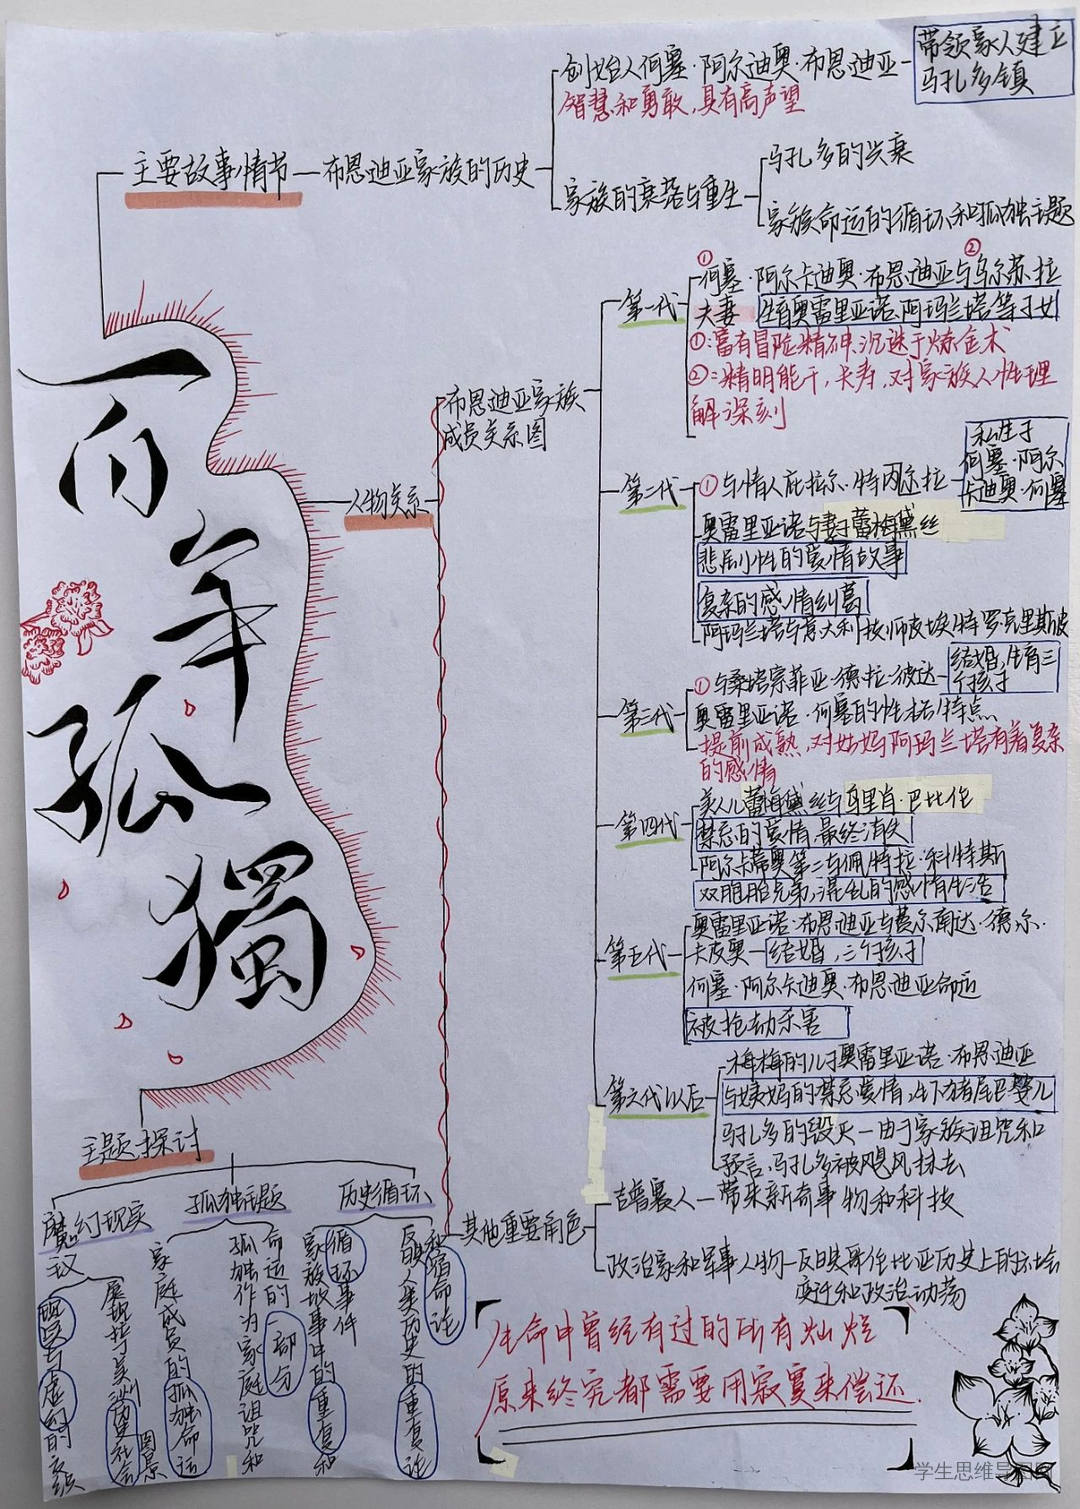 带领家人建立
马孔多镇
创始人何塞·阿尔迪奥·布恩迪亚
智慧和勇敢,具有高声望
主要故事情节
布恩迪亚家族的历史
马孔多的兴衰
家族的衰落与重生
家族命运的循环和孤独主题
一百年孤獨
人物关系
布恩迪亚家族
成员关系图
第一代
① ②
何塞·阿尔卡迪奥·布恩迪亚与乌尔苏拉
夫妻 生育奥雷里亚诺、阿玛兰塔等子女
①:富有冒险精神,沉迷于炼金术
②:精明能干,长寿,对家族人性理
解深刻
第二代
①与情人庇拉尔·特内尔拉
私生子
何塞·阿尔
卡迪奥·何塞
奥雷里亚诺与妻子蕾梅黛丝
悲剧性的爱情故事
复杂的感情纠葛
阿玛兰塔与意大利技师皮埃特罗克里斯皮
第三代
①与桑塔索菲亚·德拉·彼达
结婚,生育三
个孩子
奥雷里亚诺·何塞的性格特点
提前成熟,对姑妈阿玛兰塔有着复杂
的感情
第四代
美人儿蕾梅黛丝与马里肖·巴比伦
禁忌的爱情,最终消失
阿尔卡蒂奥第二与佩特拉·科特斯
双胞胎兄弟,混乱的感情生活
第五代
奥雷里亚诺·布恩迪亚与费尔南达·德尔·
卡皮奥 结婚,三个孩子
何塞·阿尔卡迪奥·布恩迪亚命运
被抢劫杀害
第六代以后
梅梅的儿子奥雷里亚诺·布恩迪亚
与姨妈的禁忌爱情,生下猪尾巴婴儿
马孔多的毁灭一由于家族诅咒和
预言,马孔多被飓风抹去
其他重要角色
吉普赛人一带来新奇事物和科技
政治家和军事人物一反映哥伦比亚历史上的社会
变迁和政治动荡
主题探讨
魔幻现实
主义
孤独主题
历史循环
现实与虚幻的交织
展现拉丁美洲历史社会
图景
家庭成员的孤独命运
孤独作为家庭诅咒和
命运的一部分
家族故事中的重复和
循环事件
反映人类历史的重复论
和宿命论
生命中曾经有过的所有灿烂
原来终究都需要用寂寞来偿还.
学生思维导图网